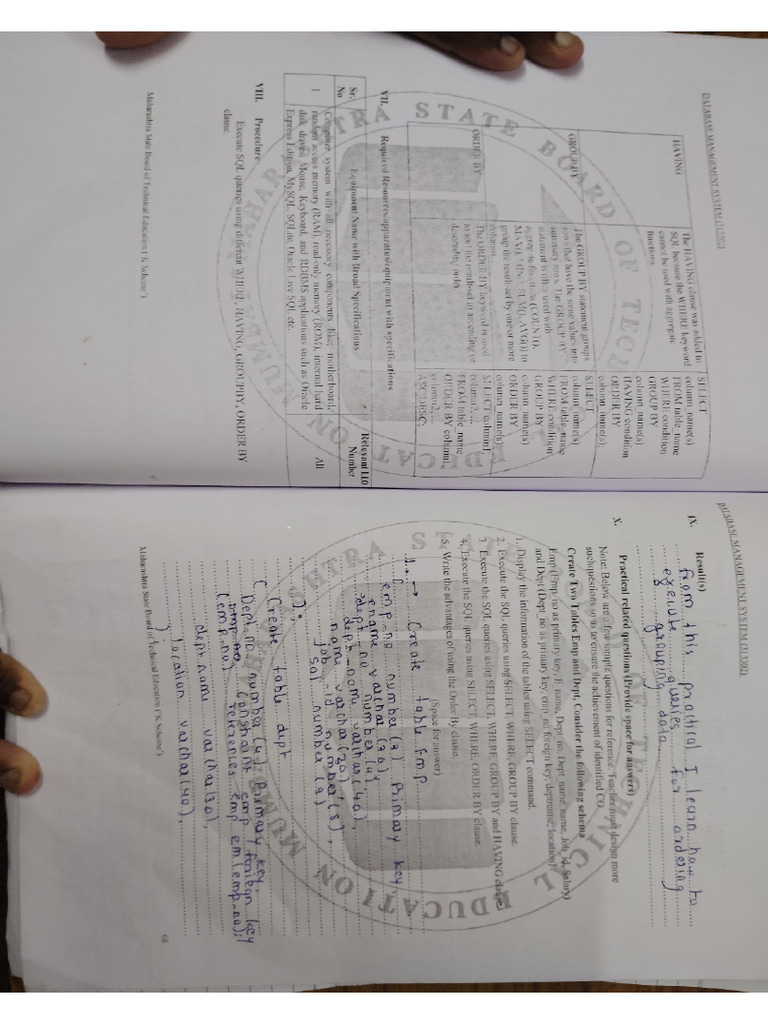 DATABASE MANAGEMENT SYSTEM (313302)
HAVING
The HAVING clause was added to
SQL because the WHERE keyword
cannot be used with aggregate
functions.
SELECT
column_name(s)
FROM table_name
WHERE condition
GROUP BY
column_name(s)
HAVING condition
ORDER BY
column_name(s);
GROUP BY
The GROUP BY statement groups
rows that have the same values into
summary rows. The GROUP BY
statement is often used with
aggregate functions (COUNT(),
MAX(), MIN(), SUM(), AVG()) to
group the result-set by one or more
columns.
SELECT
column_name(s)
FROM table_name
WHERE condition
GROUP BY
column_name(s)
ORDER BY
column_name(s);
ORDER BY
The ORDER BY keyword is used
to sort the result-set in ascending or
descending order.
SELECT column1,
column2, ...
FROM table_name
ORDER BY column1,
column2, ...
ASC|DESC;
VII. Required Resources/apparatus/equipment with specifications
Sr. No
Equipment Name with Broad Specifications
Relevant LLO Number
1
Computer system with all necessary components like; motherboard,
random access memory (RAM), read-only memory (ROM), internal hard
disk drives, Mouse, Keyboard, and RDBMS applications such as Oracle
Express Edition, MySQL, SQLite, Oracle Live SQL etc.
All
VIII. Procedure
Execute SQL queries using different WHERE, HAVING, GROUP BY, ORDER BY
clause.
Maharashtra State Board of Technical Education ('K Scheme')
DATABASE MANAGEMENT SYSTEM (313302)
IX. Result(s)
from this practical I learn how to
execute queries for ordering
grouping data
X. Practical related questions (Provide space for answer)
Note: Below are a few sample questions for reference. Teacher must design more
such questions so as to ensure the achievement of identified CO.
Create Two Tables Emp and Dept. Consider the following schema
Emp (Emp_no as primary key, E_name, Dept_no, Dept_name, Job_id, Salary)
and Dept (Dept_no as primary key, emp_no foreign key, deptname, location)
1. Display the information of the tablet using SELECT command.
2. Execute the SQL queries using SELECT, WHERE, GROUP BY clause.
3. Execute the SQL queries using SELECT, WHERE, GROUP BY and HAVING clause
4. Execute the SQL queries using SELECT, WHERE, ORDER BY clause.
5. Write the advantages of using the Order By clause.
(Space for answer)
1. → Create table Emp
(
emp_no number(3) Primary key,
ename varchar(30),
dept_no number(4),
dept_name varchar(40),
name varchar(20),
job_id number(5),
sal number(9)
);
Create table dept
(
Dept_no number(4) Primary key,
constraint emp foreign key
(emp_no) references emp em(emp_no);
deptname varchar(30),
location varchar(40),
)
Maharashtra State Board of Technical Education ('K Scheme')
68